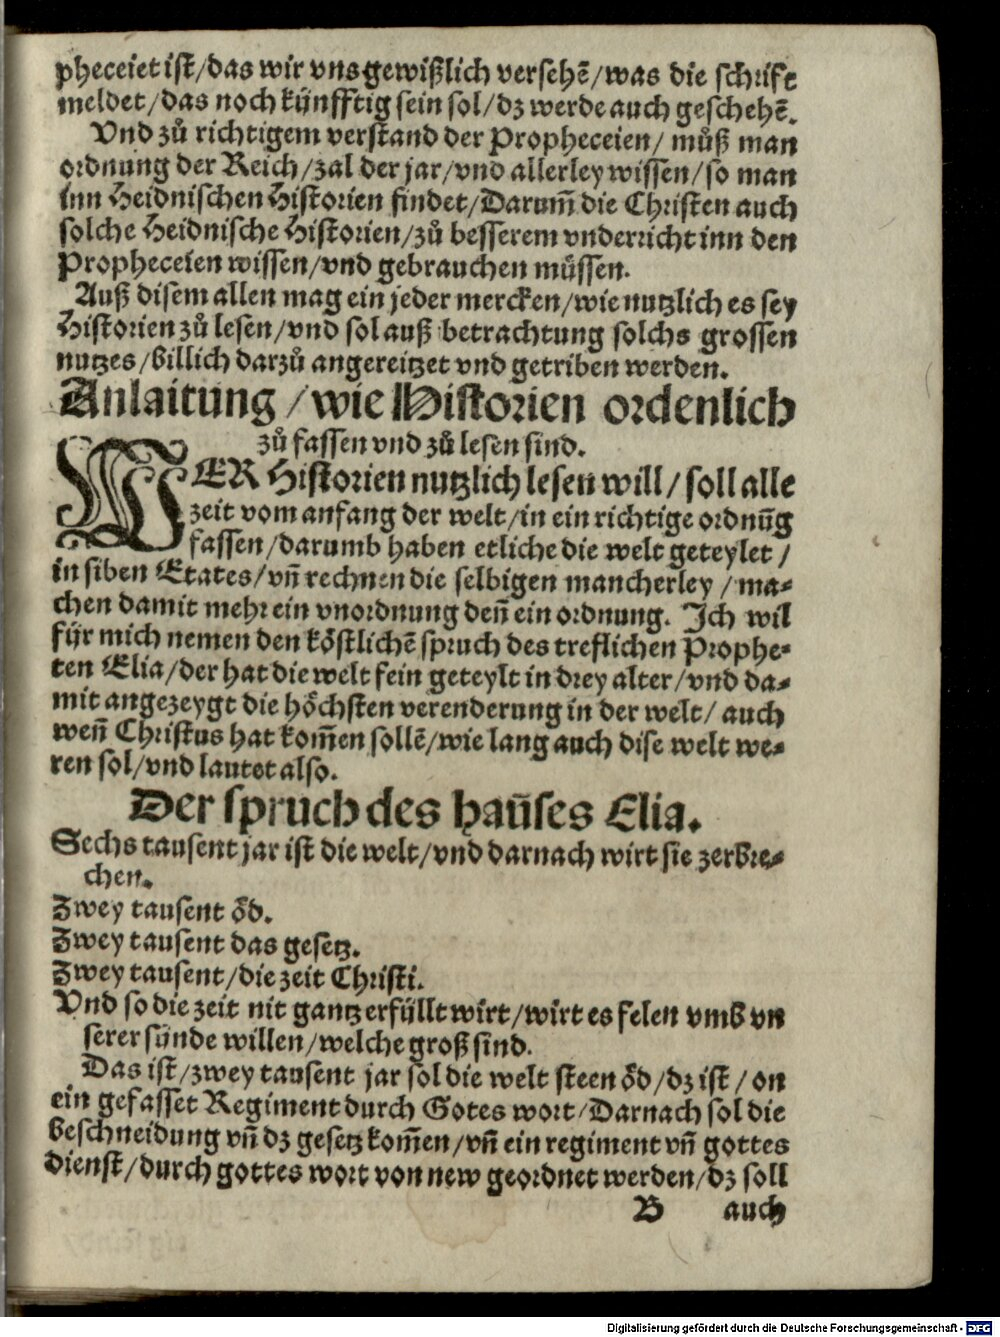 pheceiet ist/das wir vns gewißlich versehē/was die schrifft
meldet/das noch künfftig sein sol/dz werde auch geschehē.
Vnd zů richtigem verstand der Propheceien/ můß man
ordnung der Reich/zal der jar/vnd allerley wissen/so man
inn Heidnischen Historien findet/Darum̄ die Christen auch
solche Heidnische Historien/zů besserem vnderricht inn den
Propheceien wissen/vnd gebrauchen müssen.
Auß disem allen mag ein jeder mercken/wie nutzlich es sey
Historien zů lesen/vnd sol auß betrachtung solchs grossen
nutzes/billich darzů angereitzet vnd getriben werden.
Anlaitung/wie Historien ordenlich
zů fassen vnd zů lesen sind.
WER Historien nutzlich lesen will/soll alle
zeit vom anfang der welt/in ein richtige ordnūg
fassen/darumb haben etliche die welt geteylet/
in siben Etates/vn̄ rechnen die selbigen mancherley/ma-
chen damit mehr ein vnordnung den̄ ein ordnung. Ich wil
für mich nemen den köstlichē spruch des treflichen Prophe-
ten Elia/der hat die welt fein geteylt in drey alter/vnd da-
mit angezeygt die höchsten verenderung in der welt/ auch
wen̄ Christus hat kom̄en sollē/wie lang auch dise welt we-
ren sol/vnd lautet also.
Der spruch des haūses Elia.
Sechs tausent jar ist die welt/vnd darnach wirt sie zerbre-
chen.
Zwey tausent öd.
Zwey tausent das gesetz.
Zwey tausent/die zeit Christi.
Vnd so die zeit nit gantz erfüllt wirt/wirt es felen vmb vn
serer sünde willen/welche groß sind.
Das ist/zwey tausent jar sol die welt steen öd/dz ist/on
ein gefasset Regiment durch Gotes wort/Darnach sol die
beschneidung vn̄ dz gesetz kom̄en/vn̄ ein regiment vn̄ gottes
dienst/durch gottes wort von new geordnet werden/dz soll
B auch
Digitalisierung gefördert durch die Deutsche Forschungsgemeinschaft - DFG